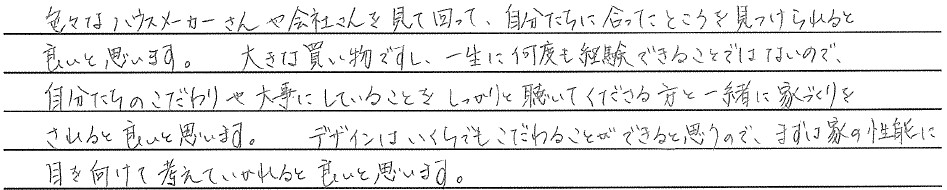 色々なハウスメーカーさんや会社さんを見て回って、自分たちに合ったところを見つけられると
良いと思います。 大きな買い物ですし、一生に何度も経験できることではないので、
自分たちのこだわりや大事にしていることをしっかりと聴いてくださる方と一緒に家づくりを
されると良いと思います。 デザインはいくらでもこだわることができると思うので、まずは家の性能に
目を向けて考えていかれると良いと思います。